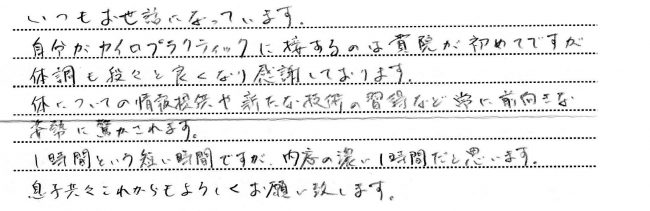 いつもお世話になっています。
自分がカイロプラクティックに接するのは貴院が初めてですが
体調も段々と良くなり感謝しております。
体についての情報提供や新たな技術の習得など常に前向きな
姿勢に驚かされます。
1時間という短い時間ですが、内容の濃い1時間だと思います。
息子共々これからもよろしくお願い致します。